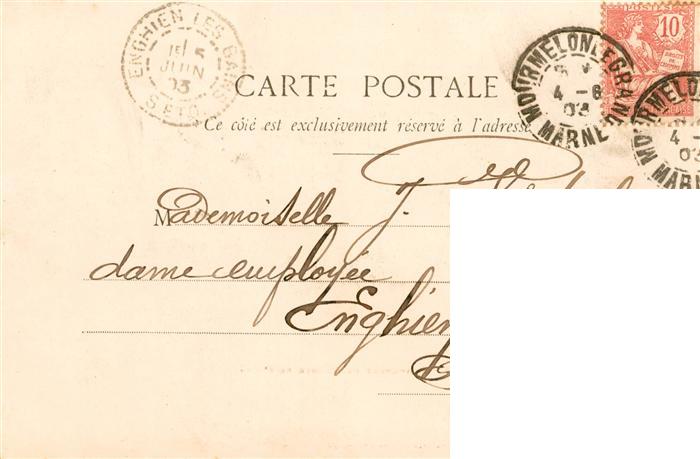 ENGHIEN LES BAINS
5
JUIN
03
S ET O
10
MOURMELON LE GRAND
4 - 6
03
MARNE
MOURMELON
4 -
03
MARN
CARTE POSTALE
Ce côté est exclusivement réservé à l'adresse
Mademoiselle J.
dame employée
Enghien